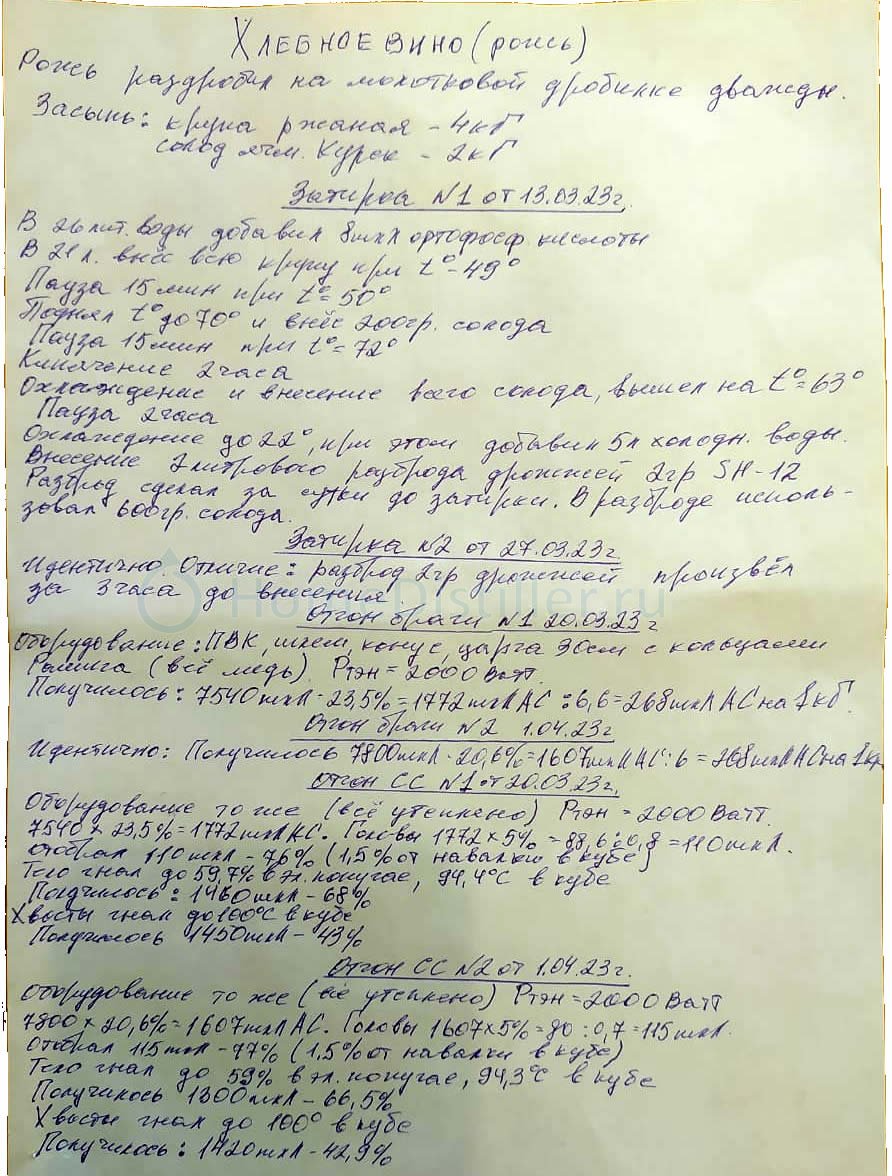 ХЛЕБНОЕ ВИНО (рожь)
Рожь раздробил на молотковой дробилке дважды.
Засыпь: крупа ржаная - 4кг
солод ячм. Курск - 2кг
Затирка №1 от 13.03.23г.
В 26лит. воды добавил 8мл ортофосф. кислоты
В 21л. внёс всю крупу при t° - 49°
Пауза 15мин при t°=50°
Поднял t° до 70° и внёс 200гр. солода
Пауза 15мин при t°=72°
Кипячение 2часа
Охлаждение и внесение всего солода, вышел на t°=63°
Пауза 2часа
Охлаждение до 22°, при этом добавил 5л холодн. воды.
Внесение 2литрового разброда дрожжей 2гр SH-12
Разброд сделал за сутки до затирки. В разброде исполь-
зовал 600гр. солода.
Затирка №2 от 27.03.23г.
Идентично. Отличие: разброд 2гр дрожжей произвёл
за 3часа до внесения
HomeDistiller.ru
Отгон браги №1 20.03.23г
Оборудование: ПВК, шлем, конус, царга 30см с кольцами
Рашига (всё медь) Pтэн = 2000 Ватт.
Получилось: 7540мл · 23,5% = 1772мл АС : 6,6 = 268мл АС на 1кг.
Отгон браги №2 1.04.23г
Идентично: Получилось 7800мл · 20,6% = 1607мл АС : 6 = 268мл АС на 1кг
Отгон СС №1 от 20.03.23г.
Оборудование то же (всё утеплено) Pтэн = 2000 Ватт.
7540 х 23,5% = 1772мл АС. Головы 1772 х 5% = 88,6 : 0,8 = 110мл.
Отобрал 110мл - 76% (1,5% от навалки в кубе)
Тело гнал до 59,7% в эл. попугае, 94,4°С в кубе
Получилось: 1460мл - 68%
Хвосты гнал до 100°С в кубе
Получилось 1450мл - 43%
Отгон СС №2 от 1.04.23г.
Оборудование то же (всё утеплено) Pтэн = 2000 Ватт
7800 х 20,6% = 1607мл АС. Головы 1607 х 5% = 80 : 0,7 = 115мл.
Отобрал 115мл - 77% (1,5% от навалки в кубе)
Тело гнал до 59% в эл. попугае, 94,3°С в кубе
Получилось 1300мл - 66,5%
Хвосты гнал до 100° в кубе
Получилось: 1420мл - 42,9%